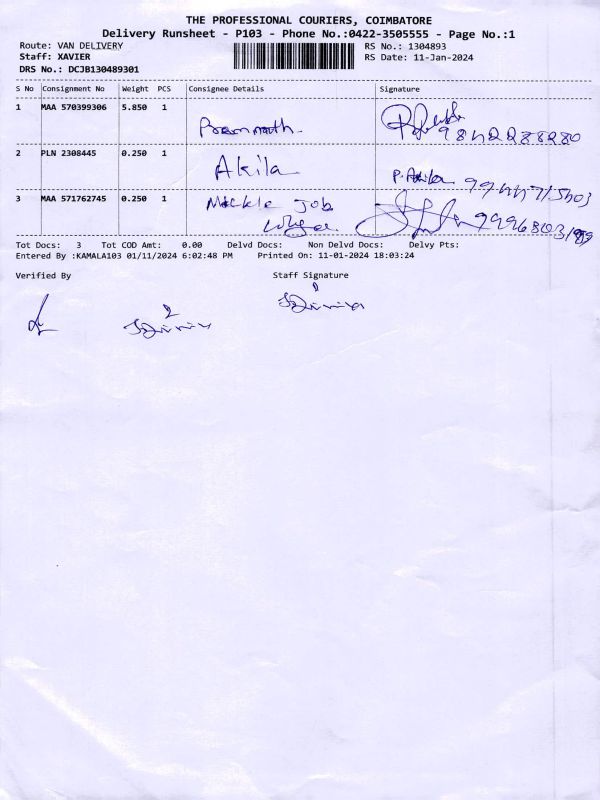 THE PROFESSIONAL COURIERS, COIMBATORE
Delivery Runsheet - P103 - Phone No.:0422-3505555 - Page No.:1
Route: VAN DELIVERY RS No.: 1304893
Staff: XAVIER RS Date: 11-Jan-2024
DRS No.: DCJB130489301
S No Consignment No Weight PCS Consignee Details Signature
1 MAA 570399306 5.850 1
Premnath. 9842288280
2 PLN 2308445 0.250 1
Akila P. Akila
3 MAA 571762745 0.250 1 Job
Tot Docs: 3 Tot COD Amt: 0.00 Delvd Docs: Non Delvd Docs: Delvy Pts:
Entered By :KAMALA103 01/11/2024 6:02:48 PM Printed On: 11-01-2024 18:03:24
Verified By Staff Signature